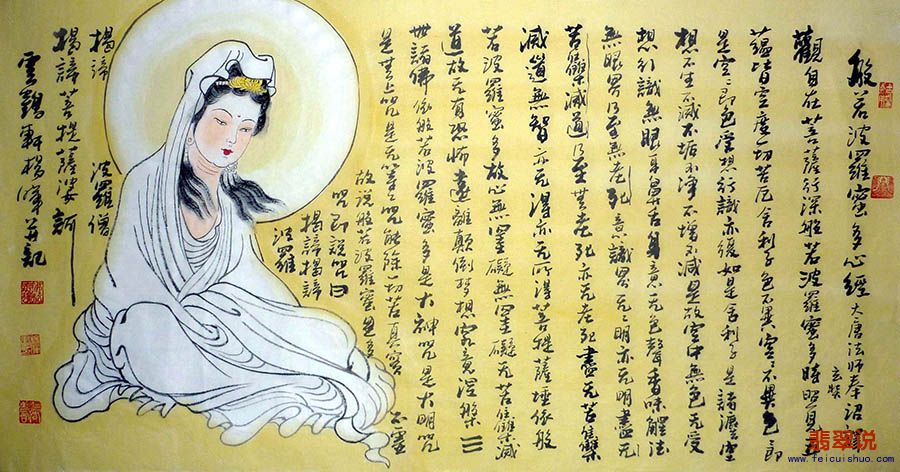 般若波羅蜜多心經 大唐法师奉诏譯
玄奘
觀自在菩薩行深般若波羅蜜多時照見五
蕴皆空度一切苦厄舍利子色不異空不異色即
是空即色受想行識亦復如是舍利子是諸法空
想不生不滅不垢不净不增不减是故空中無色无受
想行識無眼耳鼻舌身意无色聲香味觸法
無眼界乃至無意識界无无明亦无明盡无
苦集滅道乃至無老死亦无老死盡无苦集
滅道無智亦无得亦无所得菩提薩埵依般
若波羅蜜多故心無罣礙無罣礙无苦集滅
道故无有恐怖遠離顛倒梦想究竟涅槃三
世諸佛依般若波羅蜜多是大神咒是大明咒
是無上咒是无等等咒能除一切苦真實不虚
故说般若波羅蜜多
咒即説咒曰
揭諦揭諦
波羅
揭諦 波羅僧
揭諦菩提薩婆訶
雲鶴軒楊峰并記
翡翠说
www.feicuishuo.com